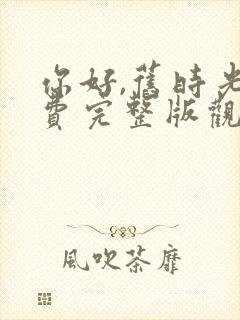 你好,舊時光
費完整版觀
風吹荼靡